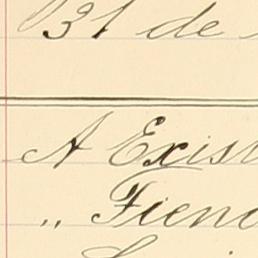 31 de
A Exist
" Fienc